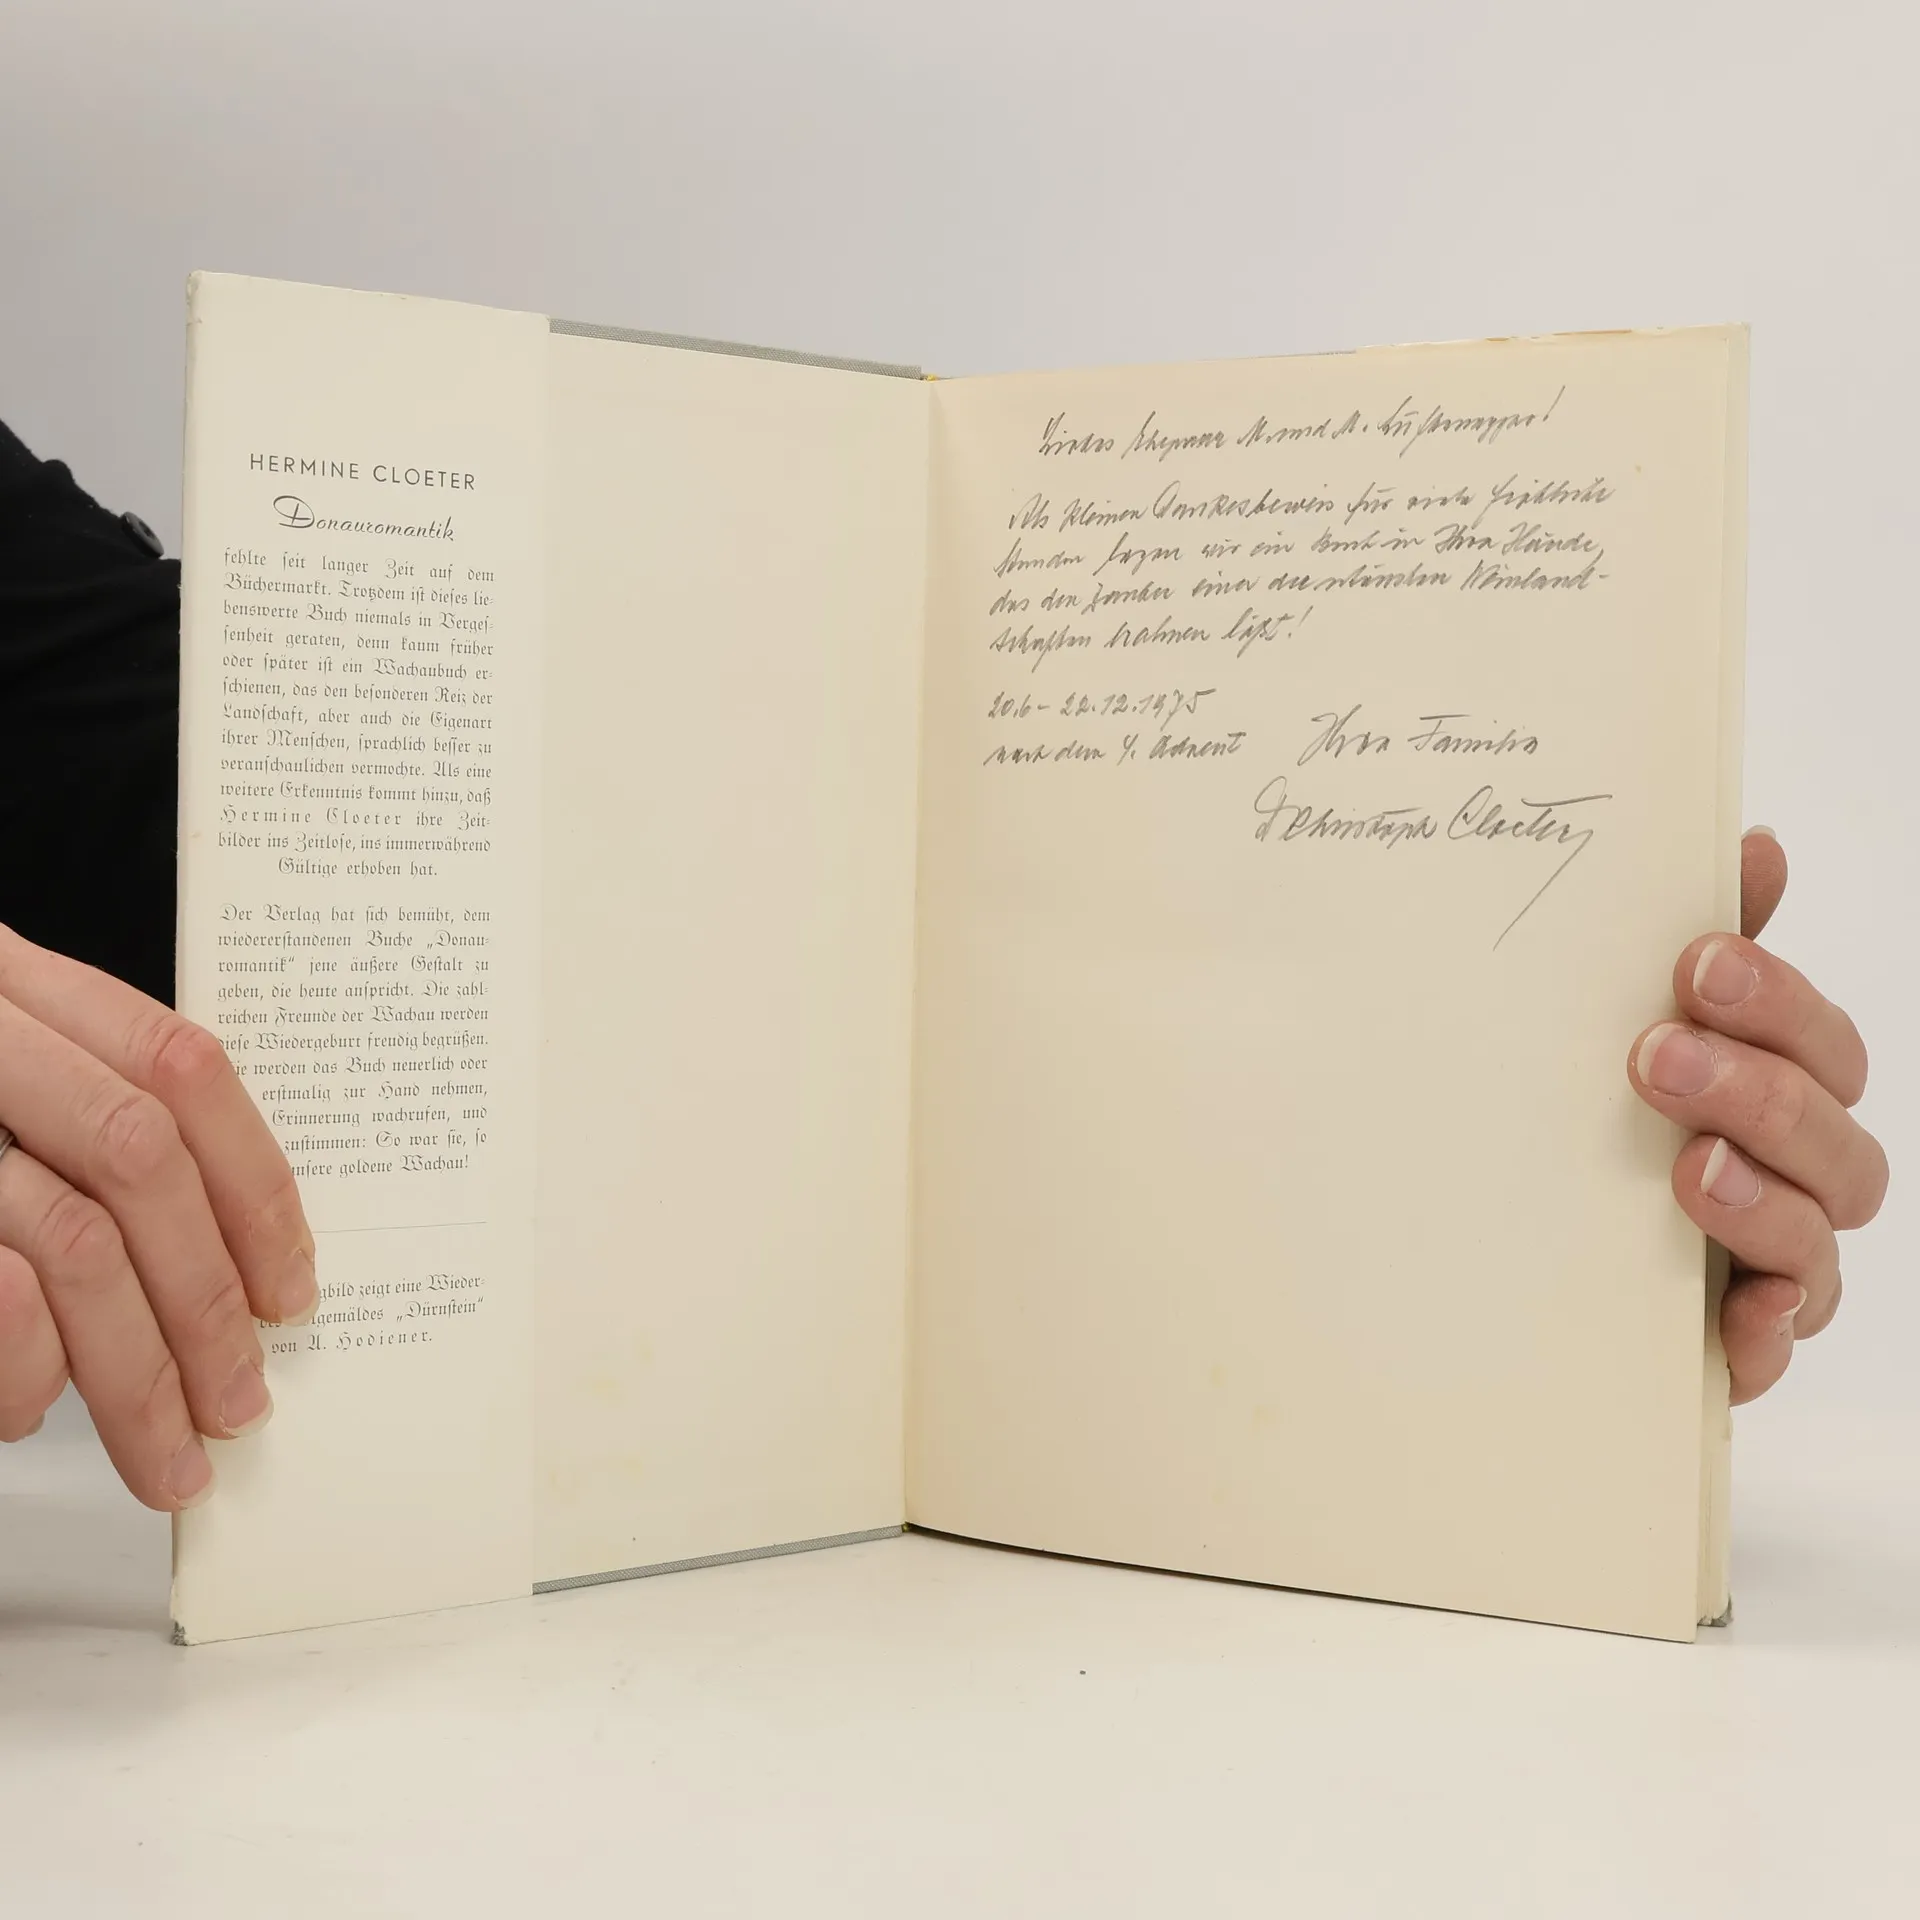 HERMINE CLOETER
Donauromantik
fehlte seit langer Zeit auf dem
Büchermarkt. Trotzdem ist dieses lie-
benswerte Buch niemals in Verges-
senheit geraten, denn kaum früher
oder später ist ein Wachaubuch er-
schienen, das den besonderen Reiz der
Landschaft, aber auch die Eigenart
ihrer Menschen, sprachlich besser zu
veranschaulichen vermochte. Als eine
weitere Erkenntnis kommt hinzu, daß
Hermine Cloeter ihre Zeit-
bilder ins Zeitlose, ins immerwährend
Gültige erhoben hat.
Der Verlag hat sich bemüht, dem
wiedererstandenen Buche „Donau-
romantik“ jene äußere Gestalt zu
geben, die heute anspricht. Die zahl-
reichen Freunde der Wachau werden
diese Wiedergeburt freudig begrüßen.
Sie werden das Buch neuerlich oder
erstmalig zur Hand nehmen,
Erinnerung wachrufen, und
zustimmen: So war sie, so
unsere goldene Wachau!
zeigt eine Wieder-
„Dürnstein“
von A. Hodiener.
Liebes Ehepaar M. und M.
Als kleinen Dankesbeweis für viele fröhliche
Stunden legen wir ein Buch in Ihre Hände,
das den Zauber einer der schönsten Weinland-
schaften erahnen läßt!
22.12.1975
nach dem 4. Advent
Ihre Familie
Christoph Cloeter